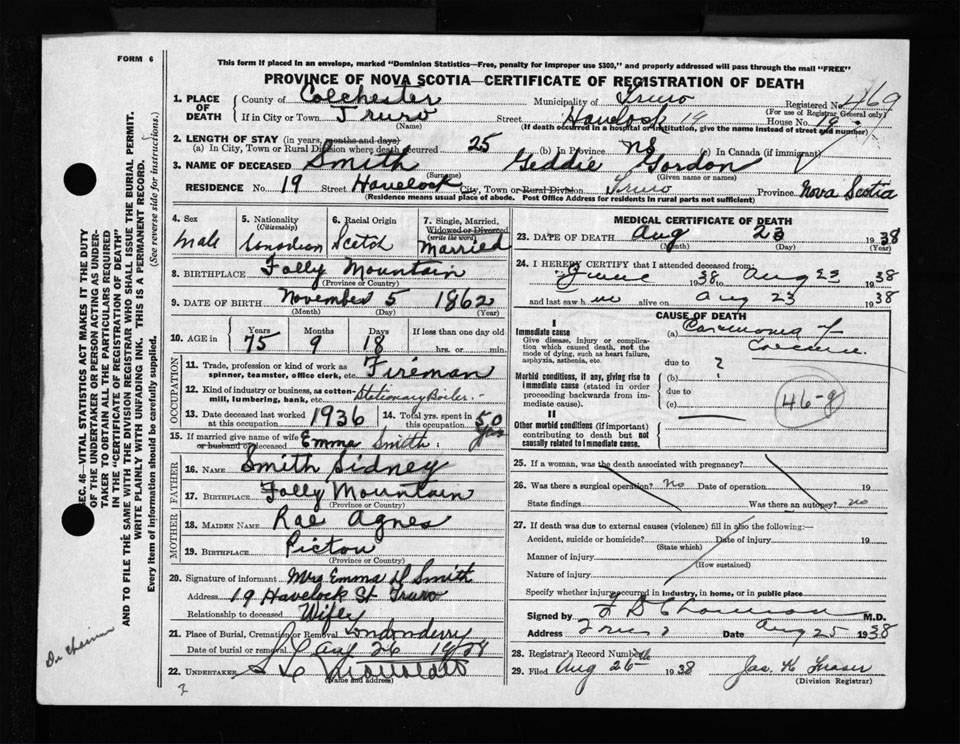 FORM 6
This form if placed in an envelope, marked "Dominion Statistics—Free, penalty for improper use $300," and properly addressed will pass through the mail "FREE"
PROVINCE OF NOVA SCOTIA—CERTIFICATE OF REGISTRATION OF DEATH
1. PLACE OF DEATH County of Colchester Municipality of Truro Registered No.
(For use of Registrar General only)
If in City or Town Truro Street Havelock 19 House No. 19
(Name) (If death occurred in a hospital or institution, give the name instead of street and number)
2. LENGTH OF STAY (in years, months and days)
(a) In City, Town or Rural Division where death occurred 25 (b) In Province NS (c) In Canada (if immigrant)
3. NAME OF DECEASED Smith Geddie Gordon
(Surname) (Given name or names)
RESIDENCE No. 19 Street Havelock City, Town or Rural Division Truro Province Nova Scotia
(Residence means usual place of abode. Post Office Address for residents in rural parts not sufficient)
4. Sex male
5. Nationality (Citizenship) Canadian
6. Racial Origin Scotch
7. Single, Married, Widowed or Divorced (write the word) Married
8. BIRTHPLACE Folly Mountain
(Province or Country)
9. DATE OF BIRTH November 5 1862
(Month) (Day) (Year)
10. AGE in Years 75 Months 9 Days 18 If less than one day old hrs. or min.
OCCUPATION
11. Trade, profession or kind of work as spinner, teamster, office clerk, etc. Fireman
12. Kind of industry or business, as cotton-mill, lumbering, bank, etc. Stationary Boiler
13. Date deceased last worked at this occupation 1936
14. Total yrs. spent in this occupation 50 yrs
15. If married give name of wife or husband of deceased Emma Smith
FATHER
16. NAME Smith Sidney
17. BIRTHPLACE Folly Mountain
(Province or Country)
MOTHER
18. MAIDEN NAME Rae Agnes
19. BIRTHPLACE Pictou
(Province or Country)
20. Signature of informant Mrs Emma D Smith
Address 19 Havelock St Truro
Relationship to deceased Wife
21. Place of Burial, Cremation or Removal Londonderry
Date of burial or removal Aug 26 1938
22. UNDERTAKER
(Name and address)
MEDICAL CERTIFICATE OF DEATH
23. DATE OF DEATH Aug 23 1938
(Month) (Day) (Year)
24. I HEREBY CERTIFY that I attended deceased from
June 1938 to Aug 23 1938
and last saw h im alive on Aug 23 1938
CAUSE OF DEATH
I
Immediate cause
Give disease, injury or complication which caused death, not the mode of dying, such as heart failure, asphyxia, asthenia, etc.
(a) Carcinoma of
due to ?
Morbid conditions, if any, giving rise to immediate cause (stated in order proceeding backwards from immediate cause).
(b)
due to
(c)
46-g
II
Other morbid conditions (if important) contributing to death but not causally related to immediate cause.
25. If a woman, was the death associated with pregnancy?
26. Was there a surgical operation? no Date of operation 19
State findings Was there an autopsy? no
27. If death was due to external causes (violence) fill in also the following:—
Accident, suicide or homicide? Date of injury 19
(State which)
Manner of injury
(How sustained)
Nature of injury
Specify whether injury occurred in industry, in home, or in public place
Signed by M.D.
Address Truro Date Aug 25 1938
28. Registrar's Record Number
29. Filed Aug 26th 1938 Jas. K Fraser
(Division Registrar)
SEC. 46—VITAL STATISTICS ACT MAKES IT THE DUTY
OF THE UNDERTAKER OR PERSON ACTING AS UNDER-
TAKER TO OBTAIN ALL THE PARTICULARS REQUIRED
IN THE "CERTIFICATE OF REGISTRATION OF DEATH"
AND TO FILE THE SAME WITH THE DIVISION REGISTRAR WHO SHALL ISSUE THE BURIAL PERMIT.
WRITE PLAINLY WITH UNFADING INK. THIS IS A PERMANENT RECORD.
Every item of information should be carefully supplied. (See reverse side for instructions.)